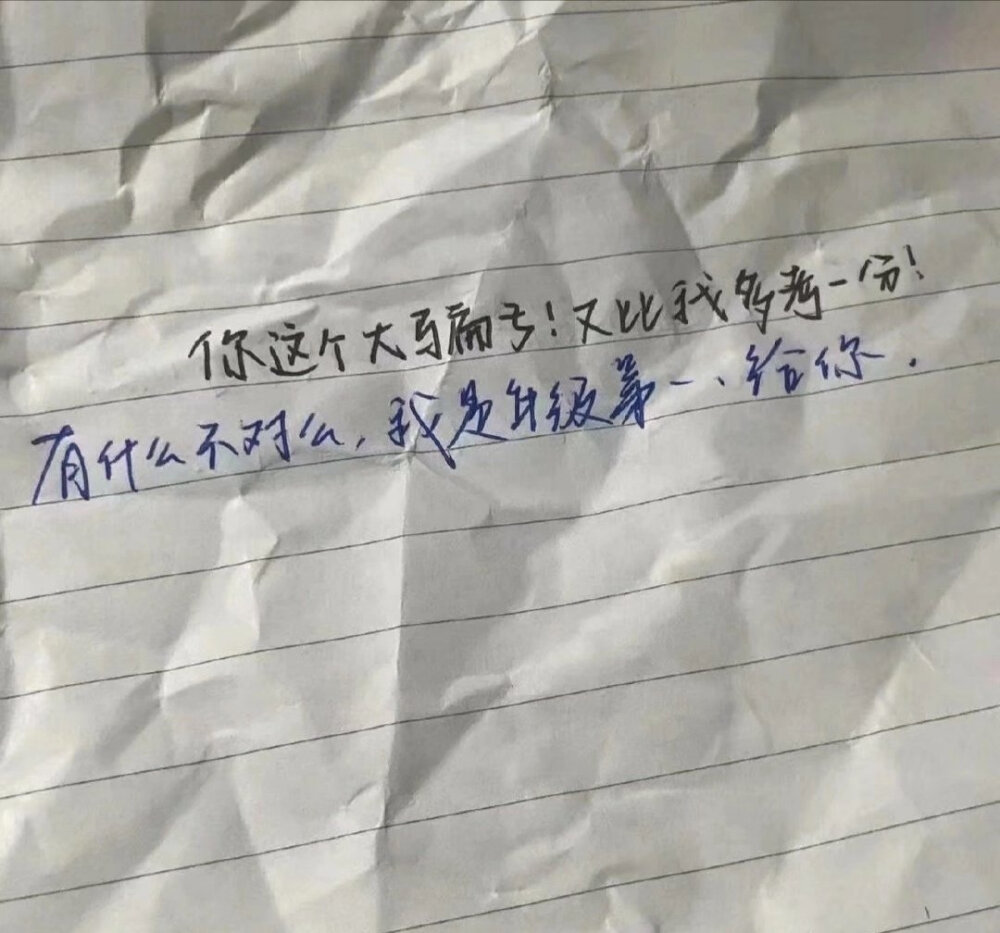 你这个大马扁亏!又比我多考一分!
有什么不对么,我是年级第一、给你.